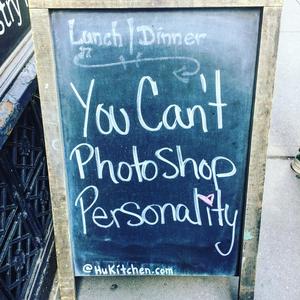 Lunch/Dinner
You Can't
PhotoShop
Personality
@HuKitchen.com